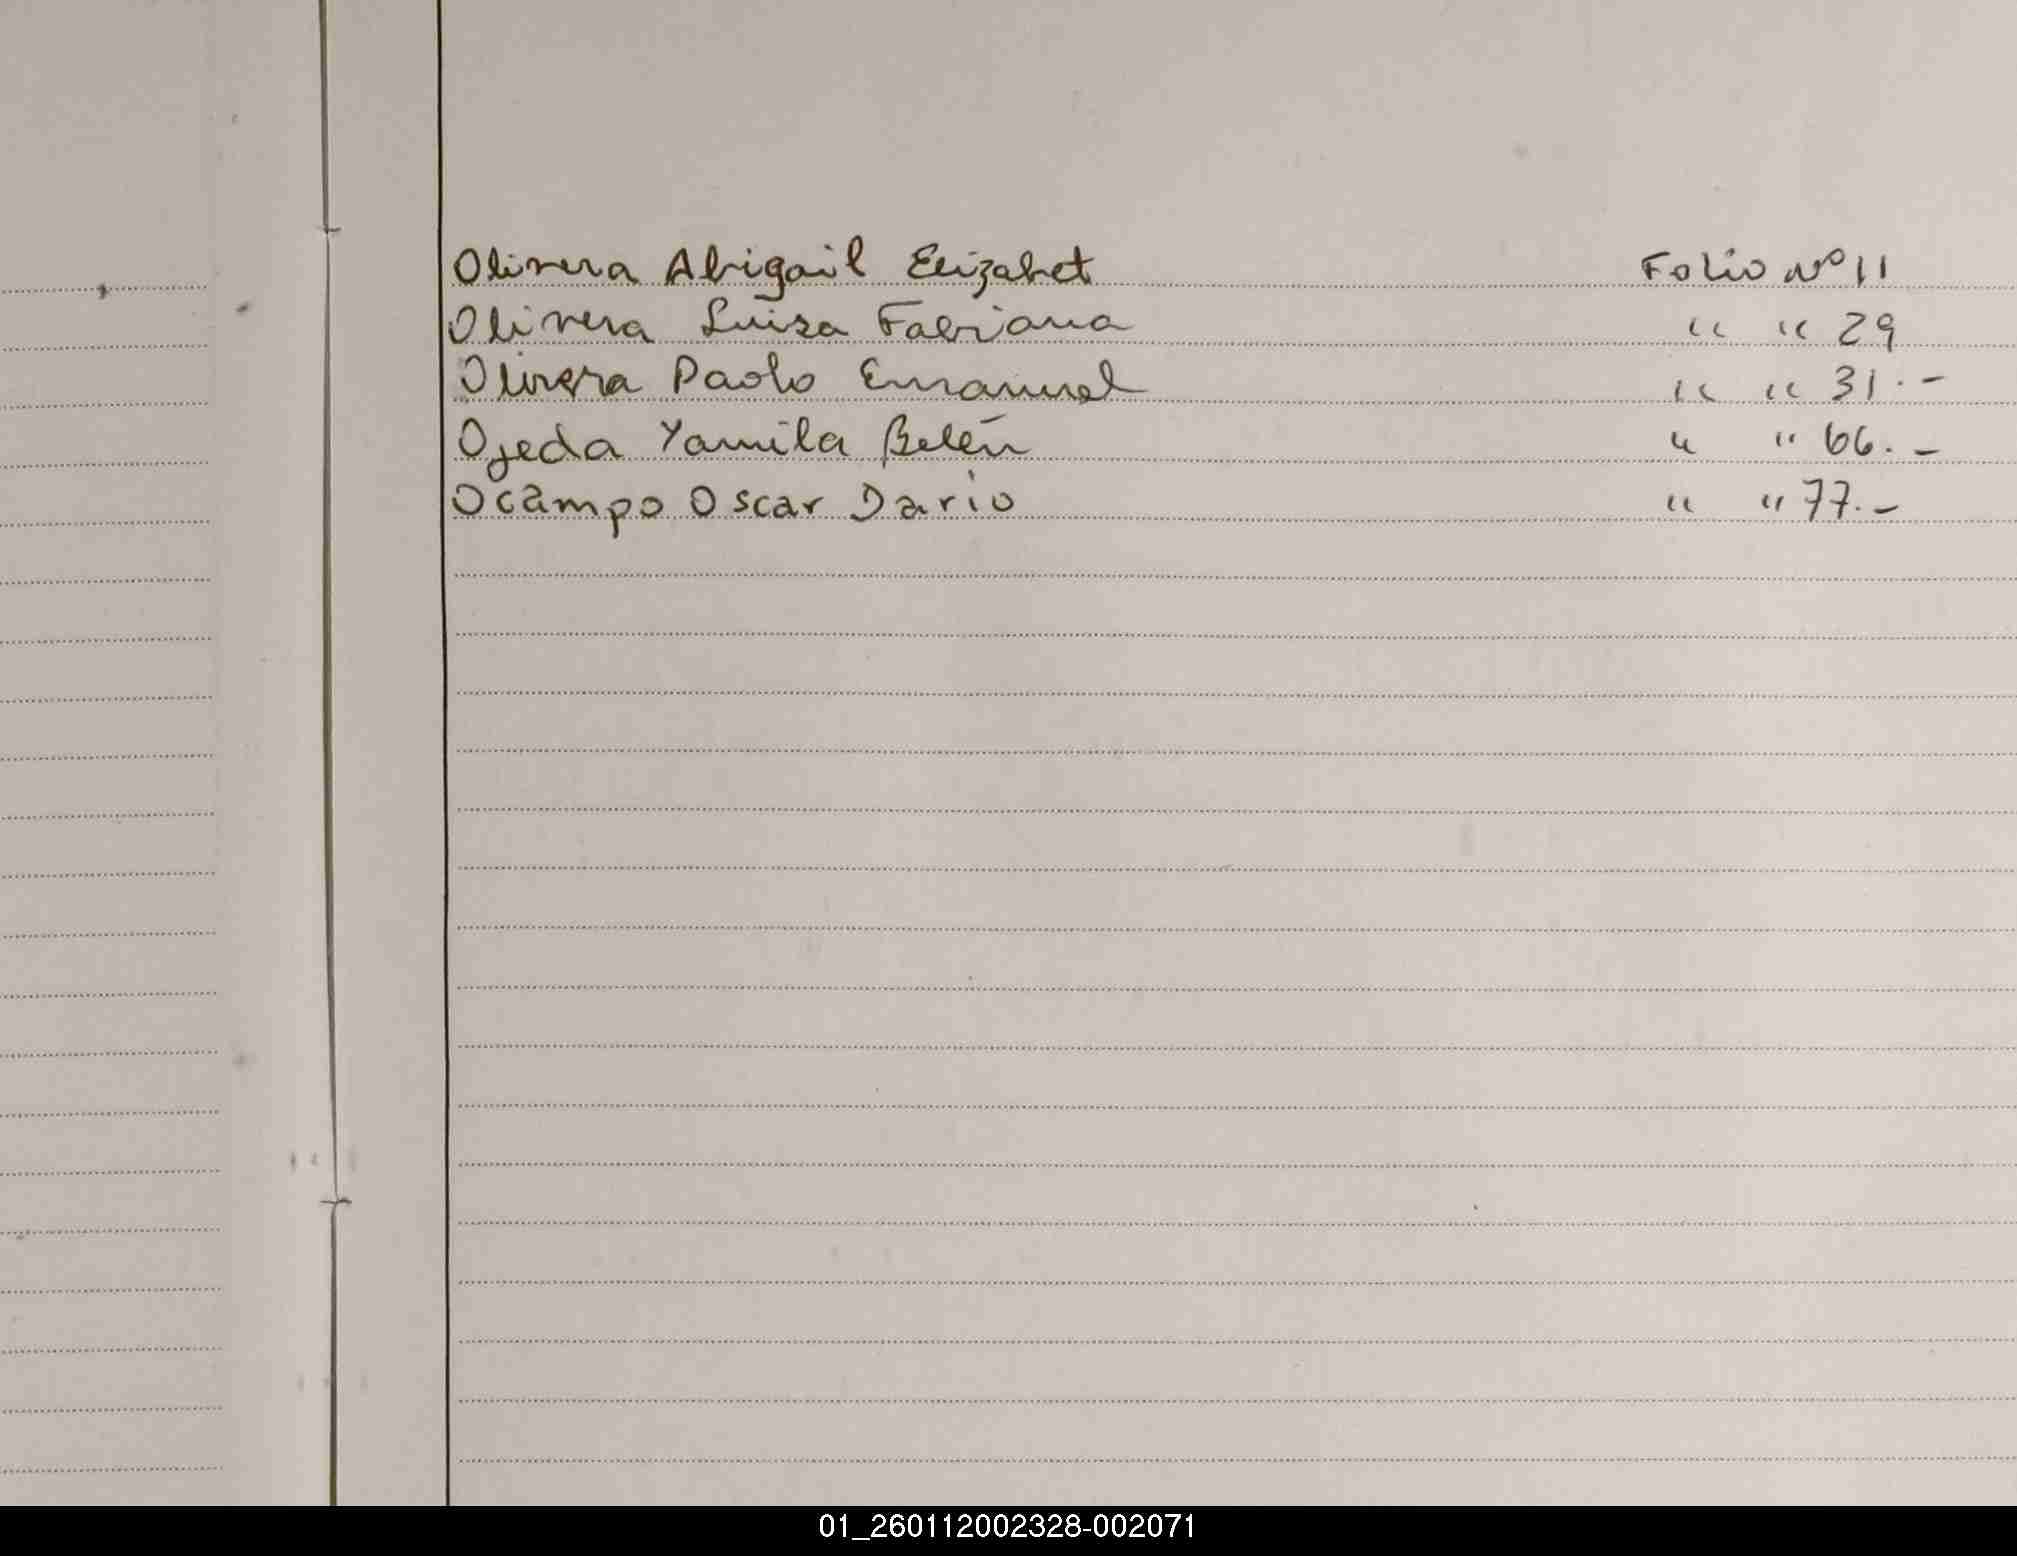 Olivera Abigail Elizabet Folio Nº 11
Olivera Luiza Fabiana " " 29
Olivera Paolo Emanuel " " 31.-
Ojeda Yamila Belén " " 66.-
Ocampo Oscar Dario " " 77.-
01_260112002328-002071